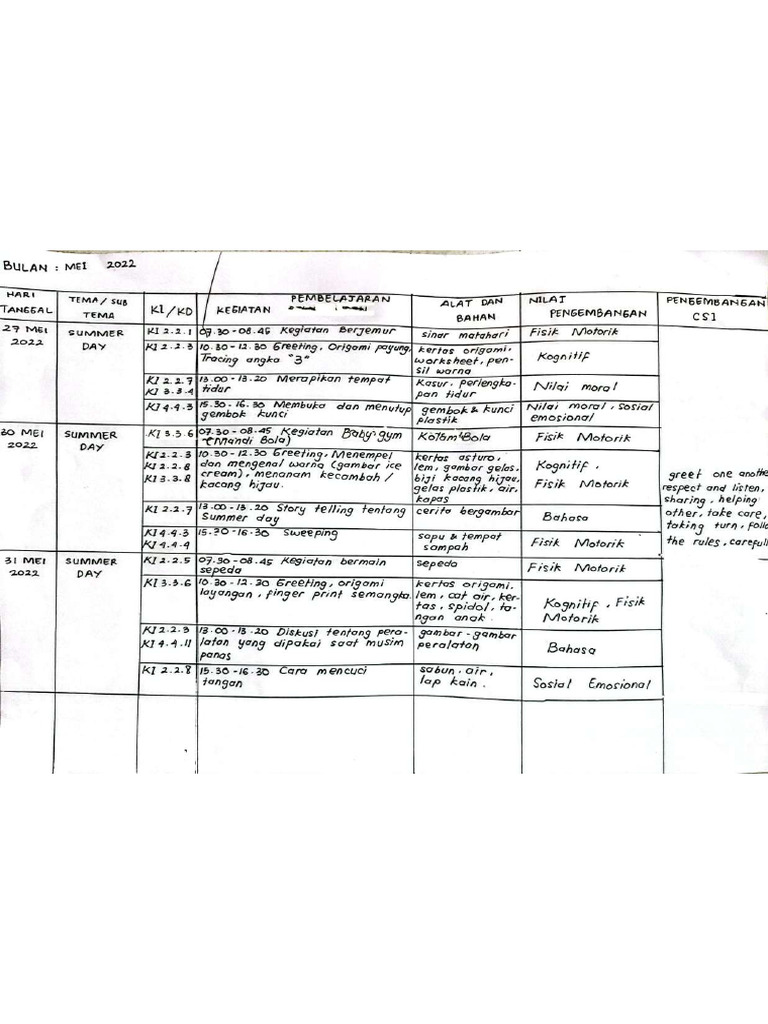 BULAN : MEI 2022
HARI TANGGAL | TEMA / SUB TEMA | KI / KD | KEGIATAN PEMBELAJARAN | ALAT DAN BAHAN | NILAI PENGEMBANGAN | PENGEMBANGAN CSI
27 MEI 2022 | SUMMER DAY
KI 2.2.1 | 07.30 - 08.45 Kegiatan Berjemur | sinar matahari | Fisik Motorik
KI 2.2.3 | 10.30 - 12.30 Greeting, Origami payung, | kertas origami, | Kognitif
Tracing angka "3" | worksheet, pen-
sil warna
KI 2.2.7 | 13.00 - 13.20 Merapikan tempat | Kasur, perlengka- | Nilai moral
KI 3.3.4 | tidur | pan tidur
KI 4.4.3 | 15.30 - 16.30 Membuka dan menutup | gembok & kunci | Nilai moral, sosial
gembok kunci | plastik | emosional
30 MEI 2022 | SUMMER DAY
KI 3.3.6 | 07.30 - 08.45 Kegiatan Baby gym | Kolam Bola | Fisik Motorik
(Mandi Bola)
KI 2.2.3 | 10.30 - 12.30 Greeting, Menempel | kertas asturo, | Kognitif,
KI 2.2.8 | dan mengenal warna (gambar ice | lem, gambar gelas, | Fisik Motorik
KI 3.3.8 | cream), menanam kecambah / | biji kacang hijau,
kacang hijau. | gelas plastik, air,
kapas
KI 2.2.7 | 13.00 - 13.20 Story telling tentang | cerita bergambar | Bahasa
Summer day
KI 4.4.3 | 15.30 - 16.30 Sweeping | sapu & tempat | Fisik Motorik
KI 4.4.4 | sampah
greet one
respect and listen,
sharing, helping
other, take care,
taking turn,
the rules,
31 MEI 2022 | SUMMER DAY
KI 2.2.5 | 07.30 - 08.45 Kegiatan bermain | sepeda | Fisik Motorik
sepeda
KI 3.3.6 | 10.30 - 12.30 Greeting, origami | kertas origami. | Kognitif, Fisik
layangan, finger print semangka. | lem, cat air, ker- | Motorik
tas, spidol, ta-
ngan anak.
KI 2.2.3 | 13.00 - 13.20 Diskusi tentang pera- | gambar-gambar | Bahasa
KI 4.4.11 | latan yang dipakai saat musim | peralatan
panas
KI 2.2.8 | 15.30 - 16.30 Cara mencuci | sabun, air, | Sosial Emosional
tangan | lap kain.